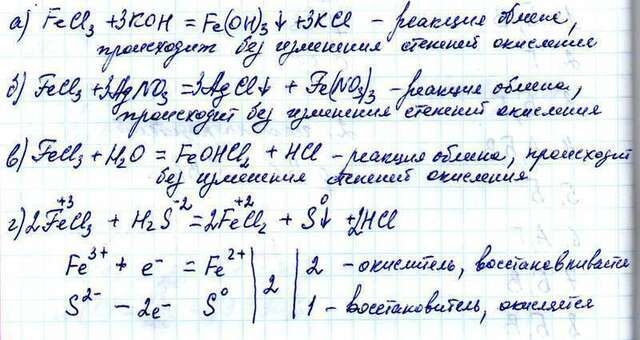 а) FeCl₃ + 3KOH = Fe(OH)₃↓ + 3KCl – реакция обмена,
происходит без изменения степеней окисления
б) FeCl₃ + 3AgNO₃ = 3AgCl↓ + Fe(NO₃)₃ – реакция обмена,
происходит без изменения степеней окисления
в) FeCl₃ + H₂O = FeOHCl₂ + HCl – реакция обмена, происходит
без изменения степеней окисления
+3 -2 +2 0
г) 2FeCl₃ + H₂S = 2FeCl₂ + S↓ + 2HCl
Fe³⁺ + e⁻ = Fe²⁺ | 2 | 2 – окислитель, восстанавливается
S²⁻ – 2e⁻ S⁰ | | 1 – восстановитель, окисляется